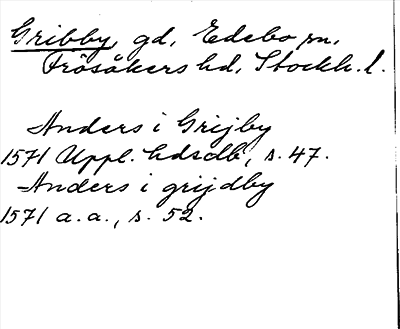 Gribby, gd, Edebo sn,
Frösåkers hd, Stockh. l.
Anders i Grijby
1571 Uppl. hdsdb, s. 47.
Anders i grijdby
1571 a. a., s. 52.